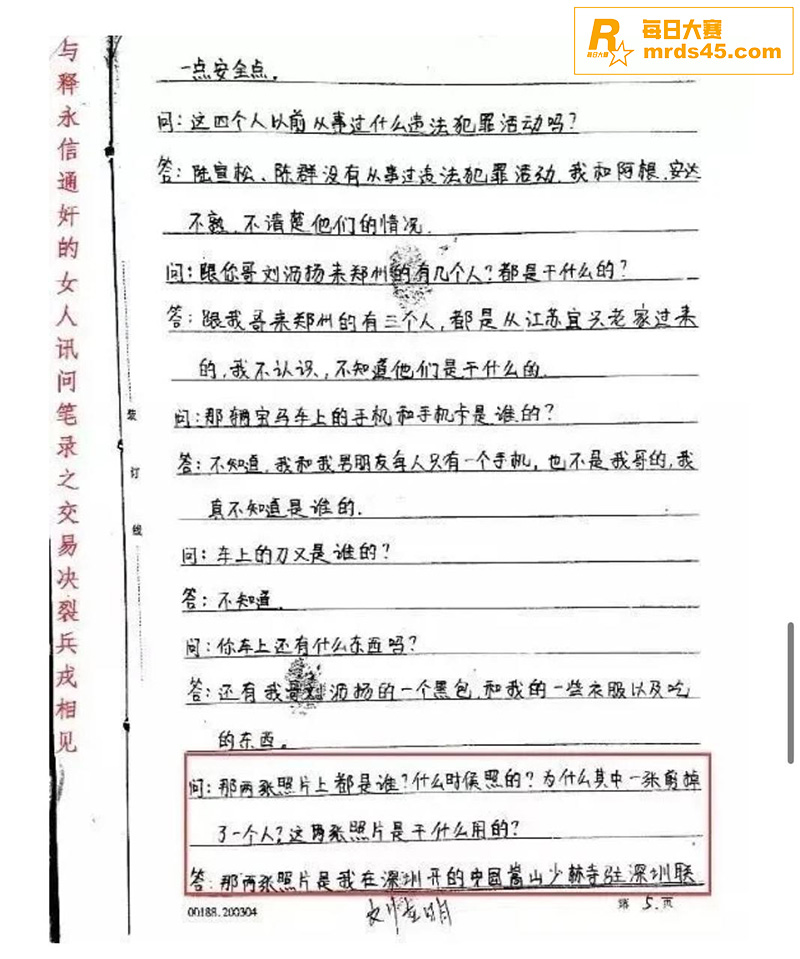 每日大赛
mrds45.com
R
每日大赛
与释永信通奸的女人讯问笔录之交易决裂兵戎相见
装
订
线
一点安全点。
问：这四个人以前从事过什么违法犯罪活动吗？
答：陆宣松、陈群没有从事过违法犯罪活动，我和阿根、安达
不熟，不清楚他们的情况。
问：跟你哥刘沥扬来郑州的有几个人？都是干什么的？
答：跟我哥来郑州的有三个人，都是从江苏宜兴老家过来
的，我不认识，不知道他们是干什么的。
问：那辆宝马车上的手机和手机卡是谁的？
答：不知道，我和我男朋友每人只有一个手机，也不是我哥的，我
真不知道是谁的。
问：车上的刀又是谁的？
答：不知道。
问：你车上还有什么东西吗？
答：还有我哥刘沥扬的一个黑包，和我的一些衣服以及吃
的东西。
问：那两张照片上都是谁？什么时候照的？为什么其中一张剪掉
了一个人？这两张照片是干什么用的？
答：那两张照片是我在深圳开的中国嵩山少林寺驻深圳联
00188.200304
第 5. 页